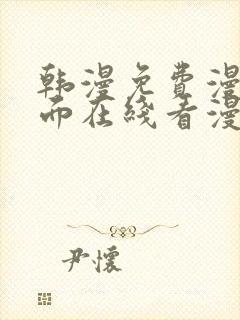 韩漫免费漫
而在线看漫
尹怀